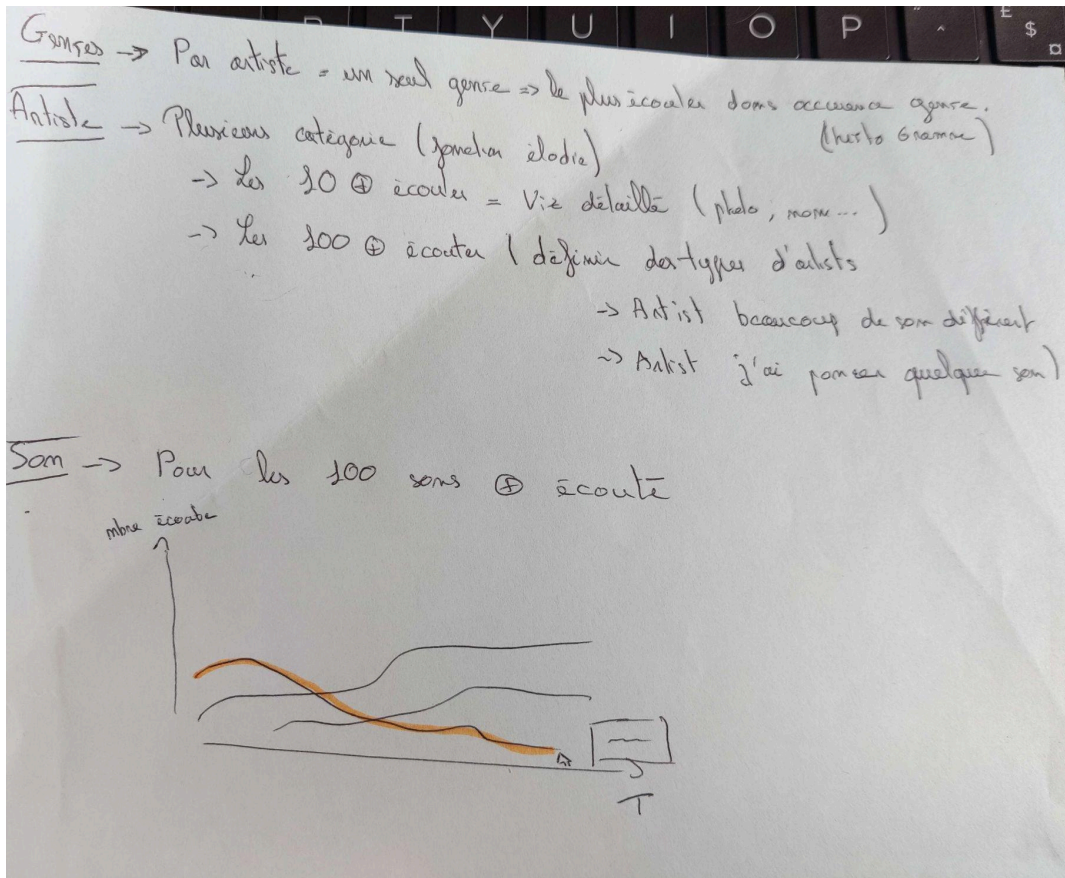 R T Y U I O P ^ £ $ ¤
Genres -> Par artiste = un seul genre => le plus écouter dans occurence genre.
(histo Gramme)
Artiste -> Plusieurs catégorie (fonction élodie)
-> Les 10 ⊕ écouter = Viz détaillé (photo, nom...)
-> Les 100 ⊕ écouter ( définir des types d'artists
-> Artist beaucoup de son différent
-> Artist j'ai poncer quelques son)
Son -> Pour les 100 sons ⊕ écouté
nbre écoute
T